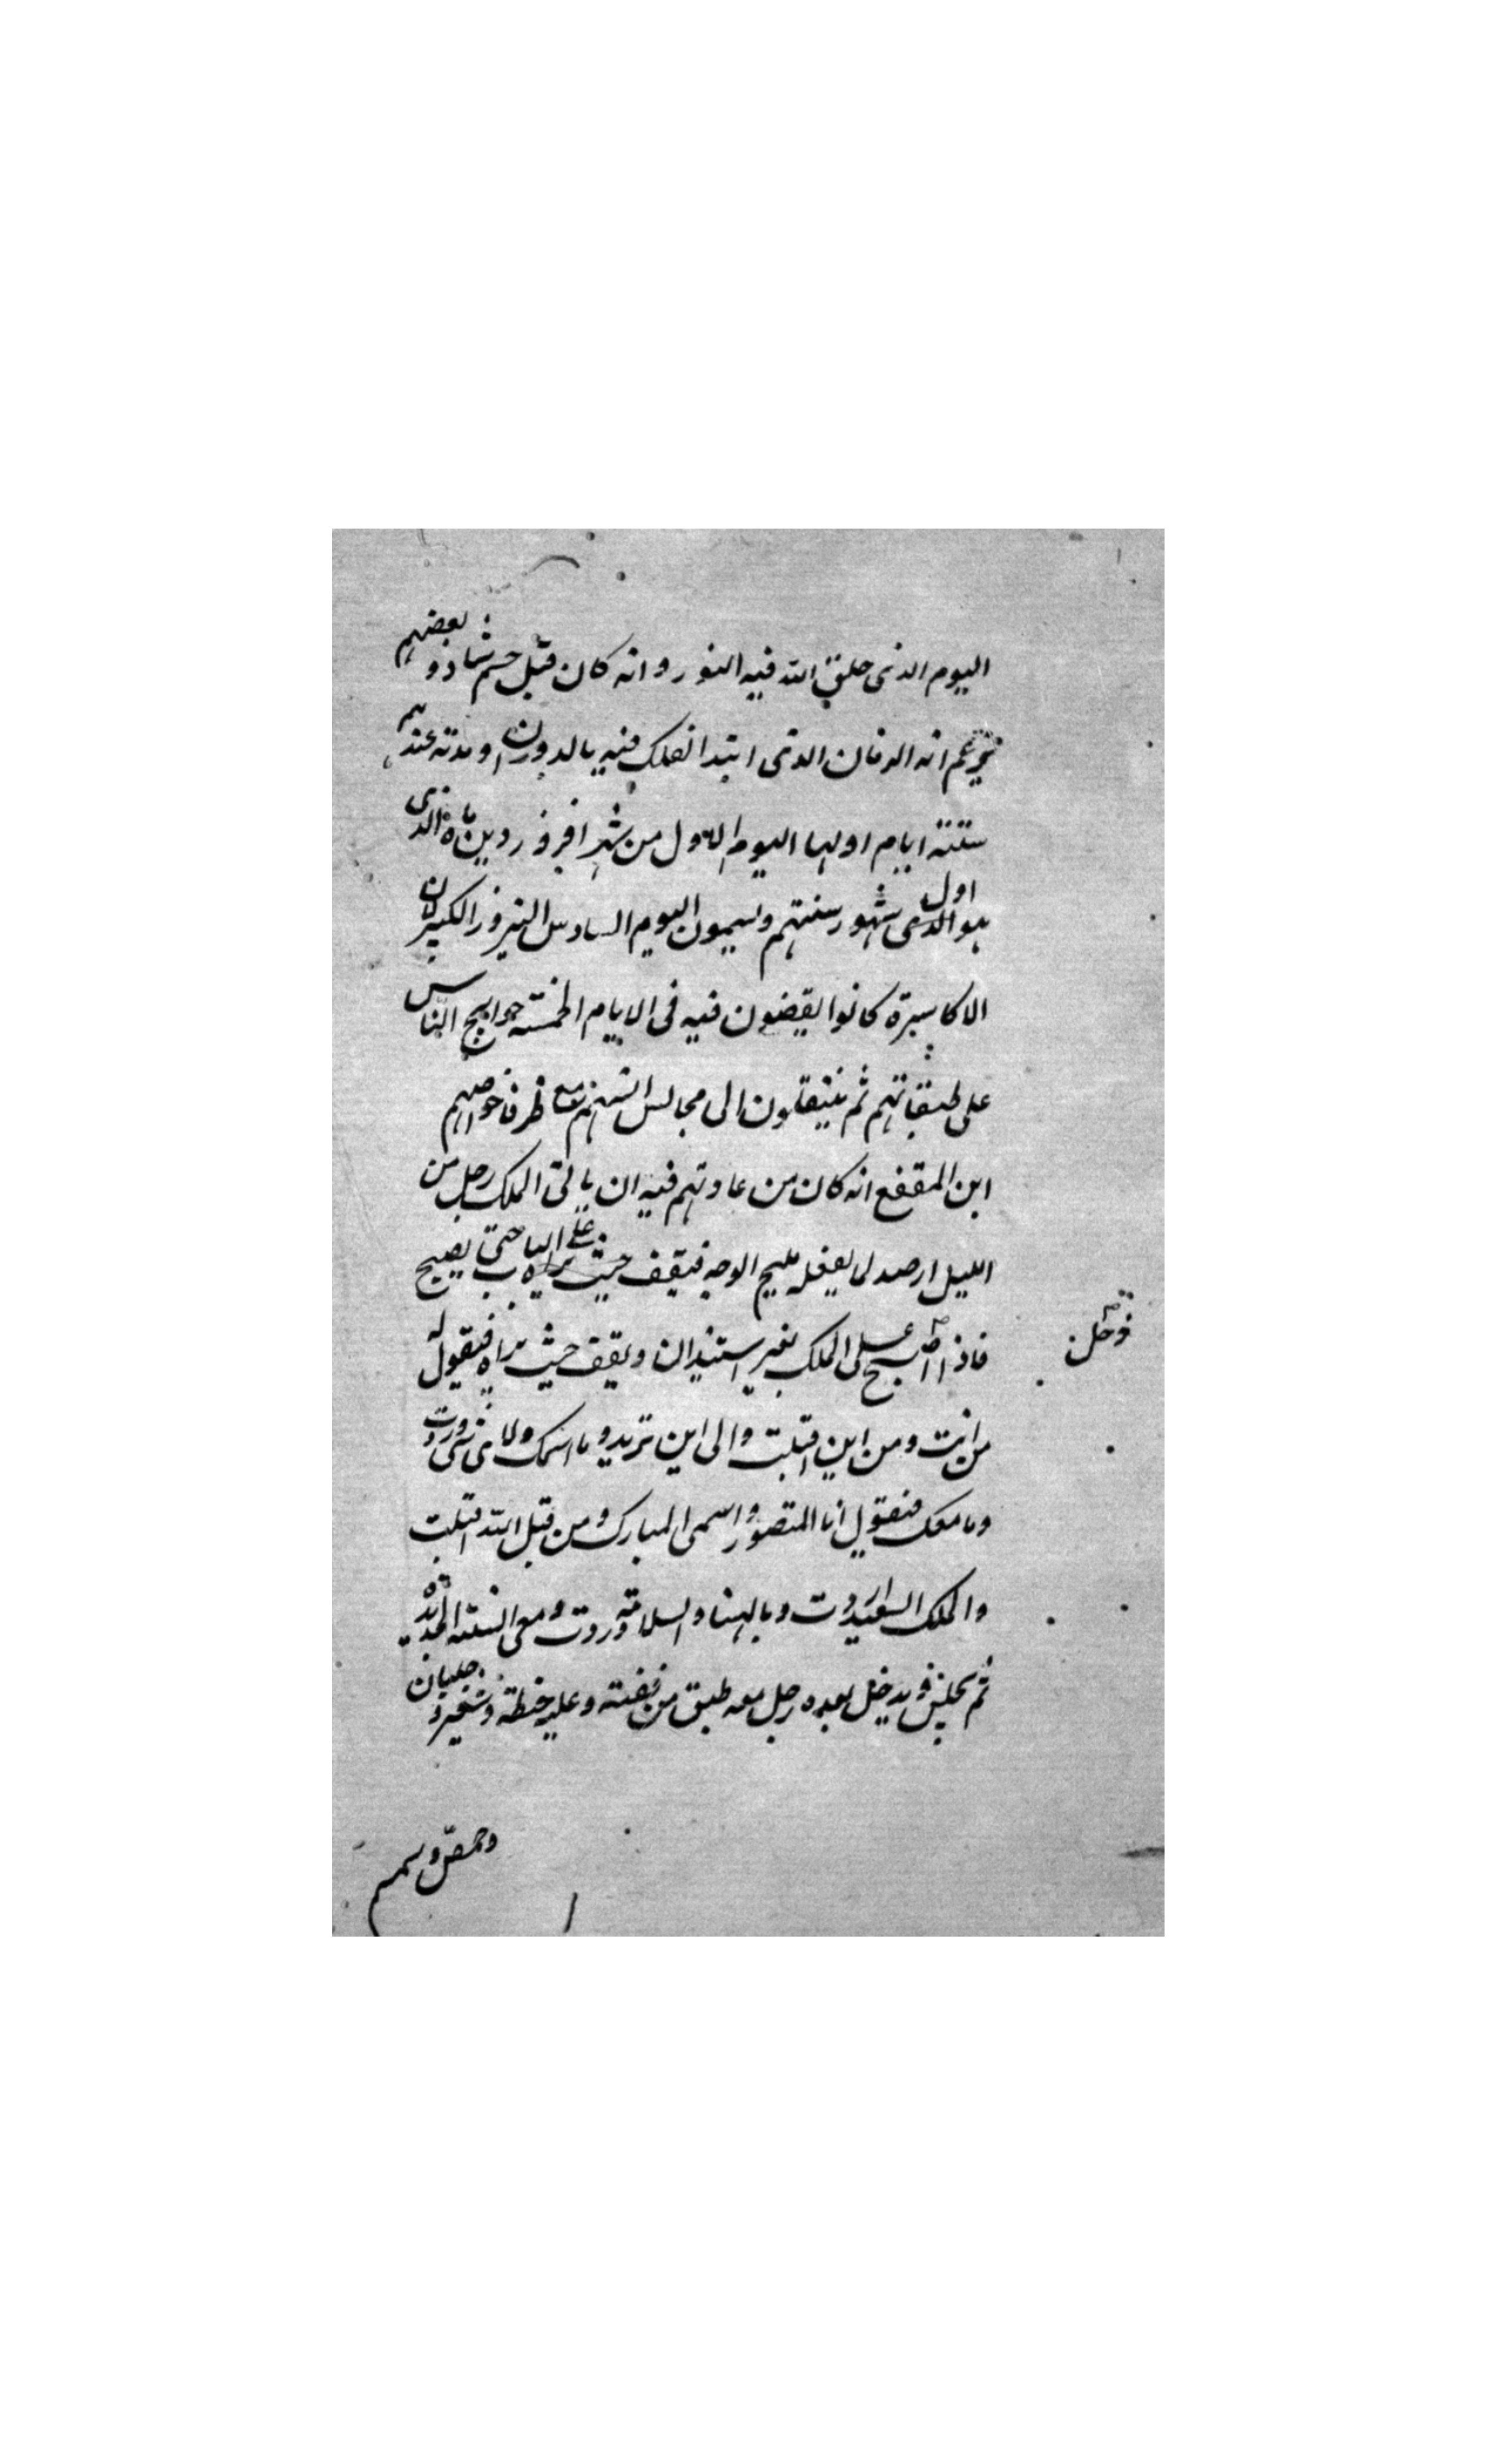 اليوم الذى خلق الله فيه النور وانه كان قبل جم شاذ و بعضهم
يزعم انه الزمان الذى ابتدا الفلك فيه بالدوران و مدته عندهم
ستة ايام اولها اليوم الاول من شهر افروردين ماه الذى
هو الذى اول شهور سنتهم ويسمون اليوم السادس النيروز الكبير لان
الاكاسرة كانوا يقضون فيه فى الايام الخمسة حوايج الناس
على طبقاتهم ثم ينتقلون الى مجالس انسهم مع ظرفا خواصهم
ابن المقفع انه كان من عادتهم فيه ان ياتى الملك رجل من
الليل ارصد لما يفعله مليح الوجه فيقف على الباب حتى يصبح
فاذا اصبح على الملك بغير استيذان ويقف حيث يراه فيقول له
دخل
من انت ومن اين اقبلت والى اين تريد و ما اسمك ولاى شى وردت
وما معك فيقول انا المنصور واسمى المبارك ومن قبل الله اقبلت
والملك السعيد اردت وبالهنا والسلامة وردت ومعى السنة الجديدة
ثم يجلس ويدخل بعده رجل معه طبق من فضة وعليه حنطة وشعير و جلبان
وحمص وسمسم